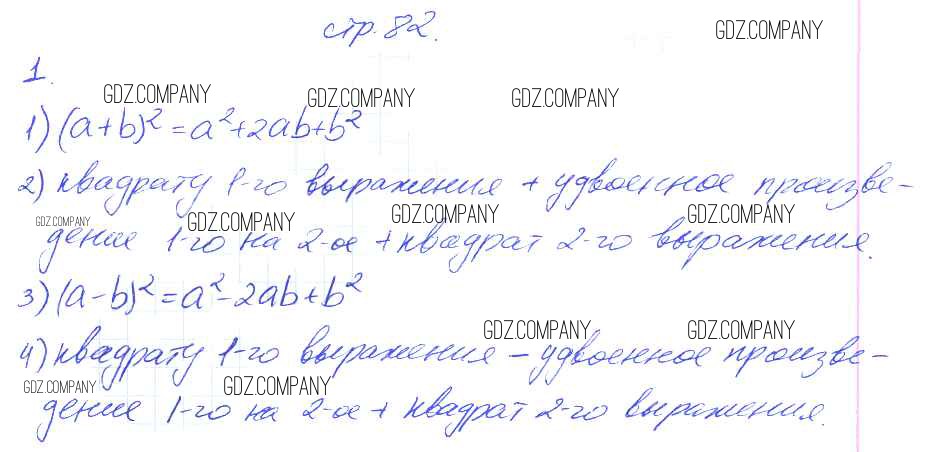 стр. 82.
GDZ.COMPANY
1.
GDZ.COMPANY GDZ.COMPANY GDZ.COMPANY
1) (a+b)²=a²+2ab+b²
2) квадрату 1-го выражения + удвоенное произве-
GDZ.COMPANY GDZ.COMPANY GDZ.COMPANY GDZ.COMPANY
дение 1-го на 2-ое + квадрат 2-го выражения.
3) (a-b)²=a²-2ab+b²
GDZ.COMPANY GDZ.COMPANY
4) квадрату 1-го выражения - удвоенное произве-
GDZ.COMPANY GDZ.COMPANY
дение 1-го на 2-ое + квадрат 2-го выражения.